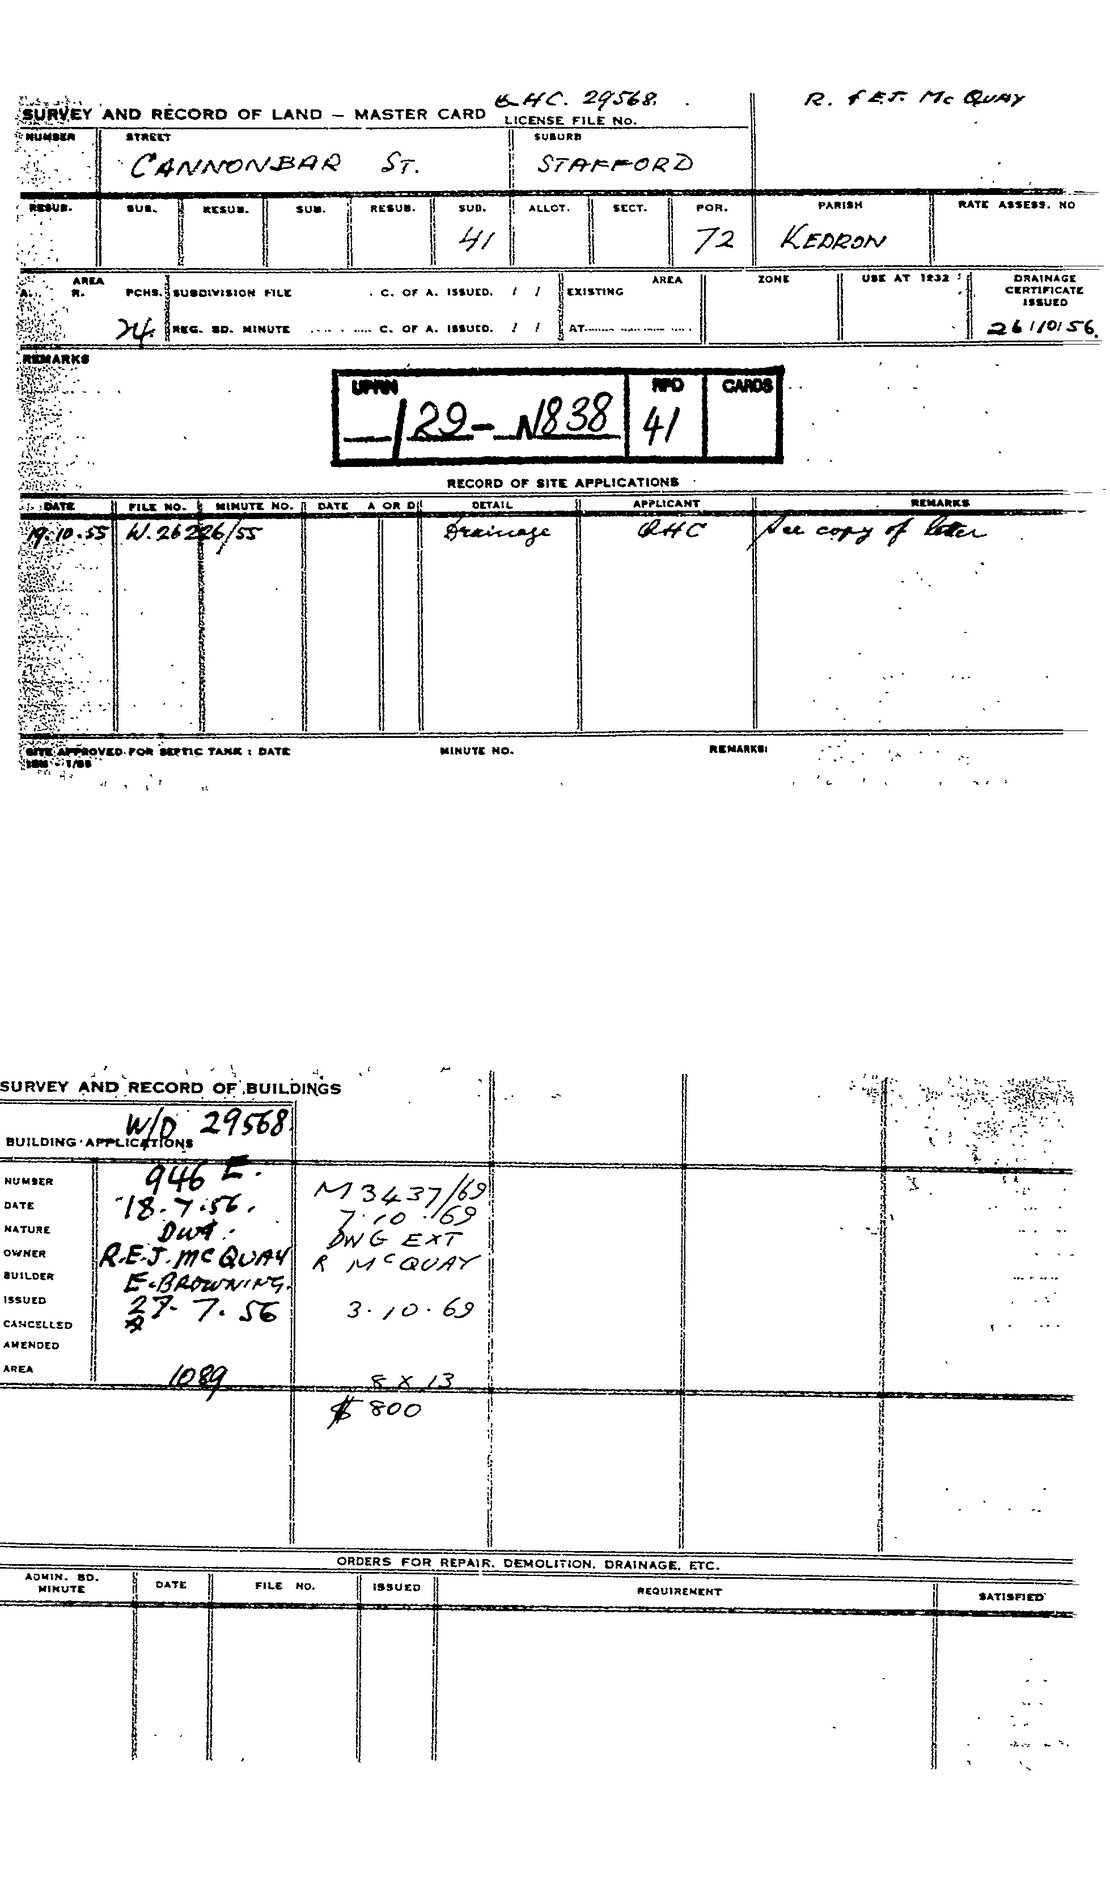 Q.H.C. 29568.
R. & E.J. McQUAY
SURVEY AND RECORD OF LAND – MASTER CARD LICENSE FILE No.
NUMBER STREET SUBURB
CANNONBAR ST. STAFFORD
RESUB. SUB. RESUB. SUB. RESUB. SUB. ALLOT. SECT. POR. PARISH RATE ASSESS. NO
41 72 KEDRON
AREA
A. R. PCHS. SUBDIVISION FILE . C. OF A. ISSUED. / / EXISTING AREA ZONE USE AT 1232 : DRAINAGE CERTIFICATE ISSUED
24. REG. BD. MINUTE ........ C. OF A. ISSUED. / / AT.................... 26/10/56.
REMARKS
UPRN RPD CARDS
/29-N838 41
RECORD OF SITE APPLICATIONS
DATE FILE NO. MINUTE NO. DATE A OR D DETAIL APPLICANT REMARKS
19.10.55 W.26226/55 Drainage QHC See copy of letter
SITE APPROVED FOR SEPTIC TANK : DATE MINUTE NO. REMARKS:
SURVEY AND RECORD OF BUILDINGS
W/D 29568
BUILDING APPLICATIONS
NUMBER 946 E. M3437/69
DATE 18.7.56. 7.10.69
NATURE Dwg. DWG EXT
OWNER R.E.J. McQUAY R McQUAY
BUILDER E.BROWNING.
ISSUED 27.7.56 3.10.69
CANCELLED
AMENDED
AREA 1089 8 X 13
$800
ORDERS FOR REPAIR, DEMOLITION, DRAINAGE, ETC.
ADMIN. BD. MINUTE DATE FILE NO. ISSUED REQUIREMENT SATISFIED